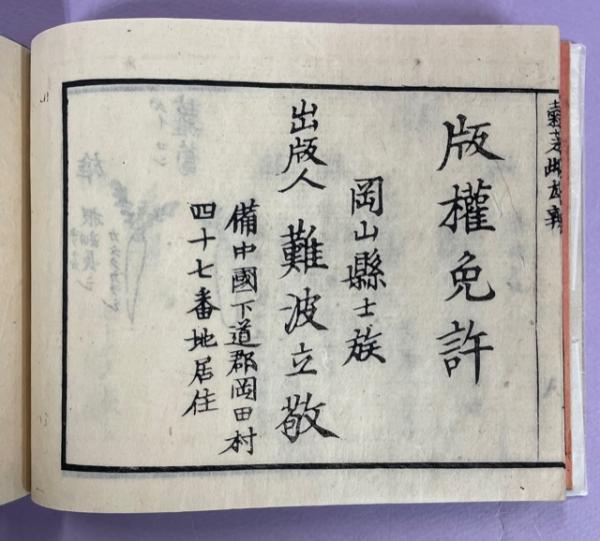 版權免許
岡山縣士族
出版人 難波立敬
備中國下道郡岡田村
四十七番地居住
蘿蔔
ダイコン
雄